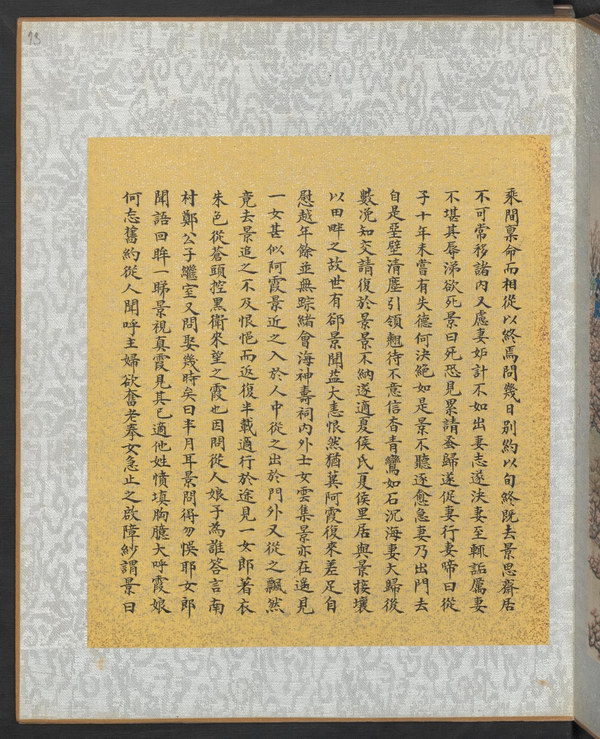 13
乘間稟命而相從以終焉問幾日別約以旬終既去景思齋居
不可常移諸内又慮妻妒計不如出妻志遂決妻至輒詬厲妻
不堪其辱涕欲死景曰死恐見累請蚤歸遂促妻行妻啼曰從
子十年未嘗有失德何決絶如是景不聽逐愈急妻乃出門去
自是堊壁清塵引領翹待不意信杳青鸞如石沉海妻大歸後
數浼知交請復於景景不納遂適夏侯氏夏侯里居與景接壤
以田畔之故世有郤景聞益大恚恨然猶冀阿霞復來差足自
慰越年餘並無踪緒會海神壽祠内外士女雲集景亦在遥見
一女甚似阿霞景近之入於人中從之出於門外又從之飄然
竟去景追之不及恨悒而返復半載適行於途見一女郎著衣
朱色從蒼頭控黑衛來望之霞也因問從人娘子為誰答言南
村鄭公子繼室又問娶幾時矣曰半月耳景問得勿悞耶女郎
聞語回眸一睇景視真霞見其已適他姓憤填胸臆大呼霞娘
何忘舊約從人聞呼主婦欲奮老拳女急止之啟障紗謂景曰